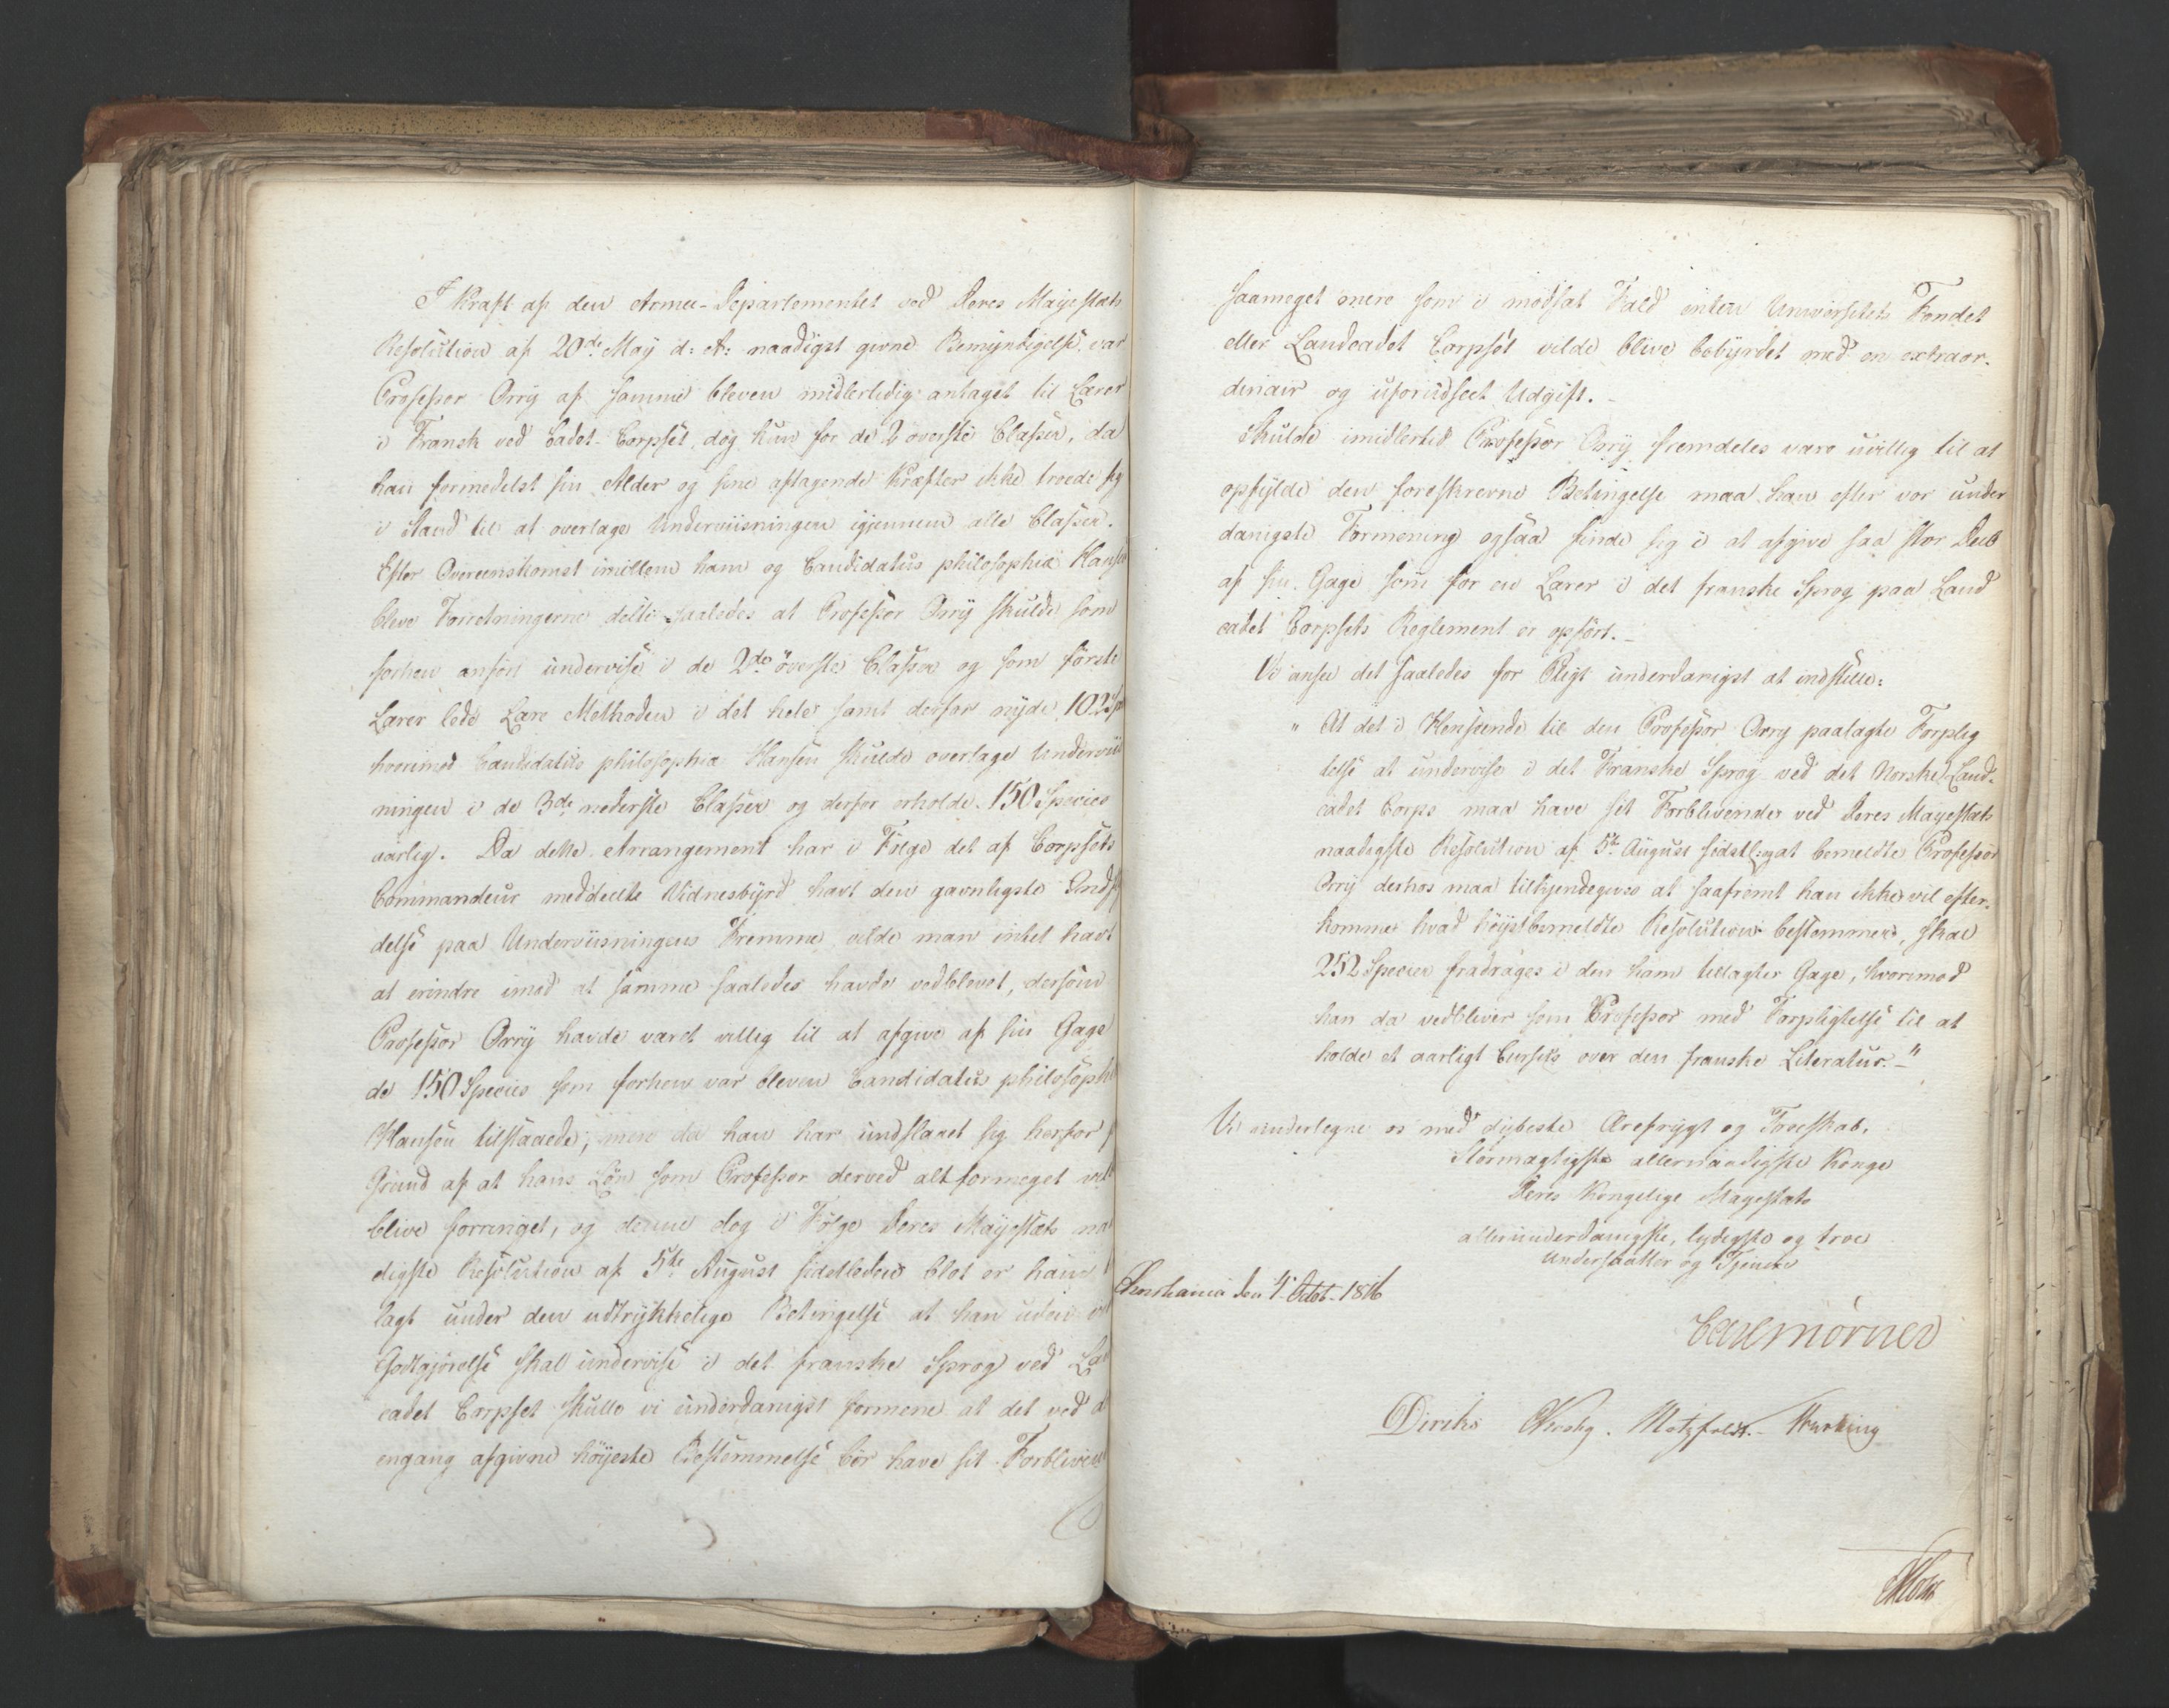 I Kraft af den Armee-Departementet ved Deres Mayestæts
Resolution af 20de May d: A: naadigst givne Bemyndigelse var
Professor Orry af samme bleven midlertidig antaget til Lærer
i Fransk ved Cadet-Corpset, dog kun for de 2 øverste Classer, da
han formedelst sin Alder og sine aftagende Kræfter ikke troede sig
i Stand til at overtage Underviisningen igjennem alle Classer.
Efter Overeenskomst imellem ham og Candidatus philosophiæ Hansen
bleve Forretningerne deelte saaledes at Professor Orry skulde som
forhen anført undervise i de 2de øverste Classer og som første
Lærer lede Lære Methoden i det hele samt derfor nyde 102 Sp
hvorimod Candidatus philosophiæ Hansen skulde overtage Underviis
ningen i de 3de nederste Classer og derfor erholde 150 Species
aarlig. Da dette Arrangement har i Følge det af Corpsets
Commandeur meddeelte Vidnesbyrd havt den gavnligste Indfly
delse paa Underviisningens Fremme vilde man intet havt
at erindre imod at samme saaledes havde vedblevet, dersom
Professor Orry havde været villig til at afgive af sin Gage
de 150 Species som forhen var bleven Candidatus philosophi
Hansen tilstaaede; men da han har undslaaet sig herfor p
Grund af at hans Løn som Professor derved altformeget vilde
blive forringet, og denne dog i Følge Deres Mayestæts naa
digste Resolution af 5te August sidstleden blot er ham
lagt under den udtrykkelige Betingelse at han uden
Godtgjørelse skal undervise i det franske Sprog ved Land
cadet Corpset skulle vi underdanigst formene at det ved d
engang afgivne høyeste Bestemmelse bør have sit Forblivend
saameget mere som i modsat Fald enten Universitets Fondet
eller Landcadet Corpset vilde blive bebyrdet med en extraor-
dinair og uforudseet Udgift.-
Skulde imidlertid Professor Orry fremdeles være uvillig til at
opfylde den foreskrevne Betingelse maa han efter vor under
danigste Formening ogsaa finde sig i at afgive saa stor Deel
af sin Gage som for en Lærer i det franske Sprog paa Land
cadet Corpsets Reglement er opført.-
Vi ansee det saaledes for Pligt underdanigst at indstille:
" At det i Henseende til den Professor Orry paalagte Forplig
telse at undervise i det Franske Sprog ved det Norske Land-
cadet Corps maa have sit Forblivende ved Deres Mayestæts
naadigste Resolution af 5te August sidstl: og at bemeldte Professor
Orry derhos maa tilkjendegives at saafremt han ikke vil efter-
komme hvad høystbemeldte Resolution bestemmer, skal
252 Species fradrages i den ham tillagte Gage, hvorimod
han da vedbliver som Professor med Forpligtelse til at
holde et aarligt Cursus over den franske Literatur.-"
Vi underlegne os med dybeste Ærefrygt og Troeskab,
Stormægtigste allernaadigste Konge
Deres Kongelige Mayestæts
allerunderdanigste, lydigste og troe
Undersaatter og Tjenere
Christiania den 4 Octbr. 1816
Carl Mörner
Diriks Hersleb. Motzfeldt.- Treschow